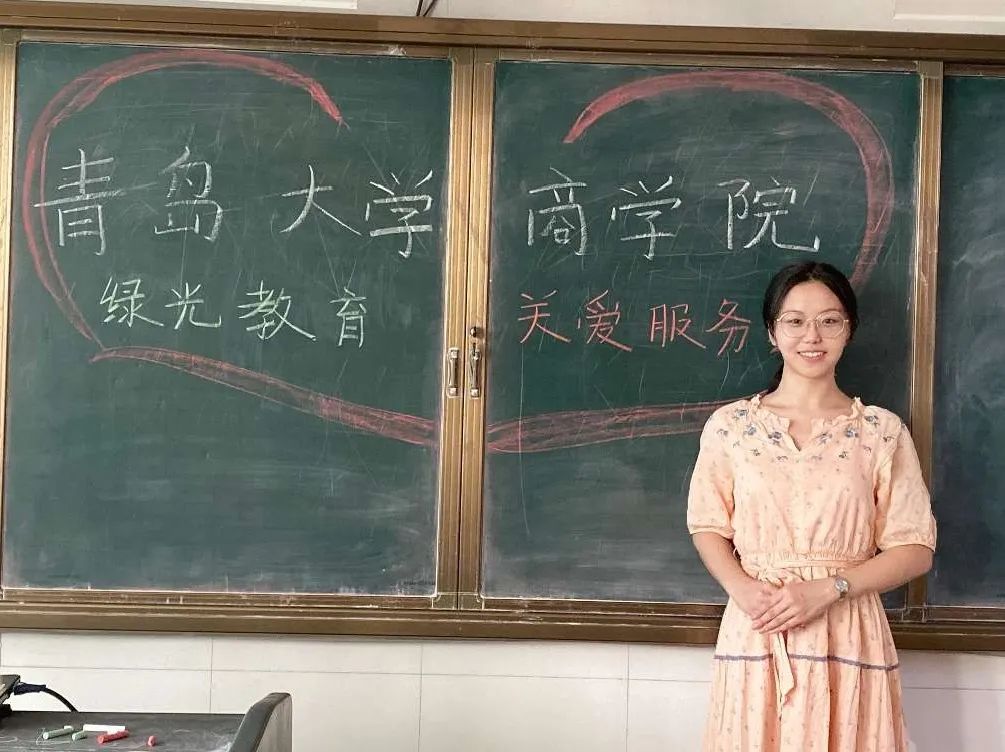 青岛大学 商学院
绿光教育 关爱服务